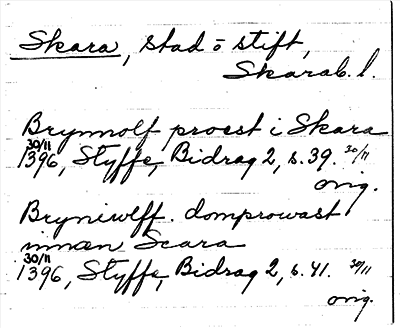 Skara, stad o stift,
Skarab. l.
Brynnolf proest i Skara
30/11
1396, Styffe, Bidrag 2, s. 39. 30/11
orig.
Bryniwlff. domprowast
innæn Scara
30/11
1396, Styffe, Bidrag 2, s. 41. 30/11
orig.